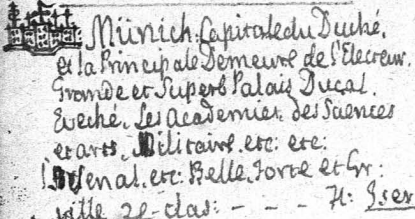 Münich. Capitale du Duché,
et la Principale Demeure de l'Electeur.
Grande et Superb Palais Ducal.
Eveché. Les academies des Sciences
et arts, Militaire, etc: etc:
l'Arsenal. etc: Belle, Forte et Gr:
ville 2e clas: - - - H: Iser